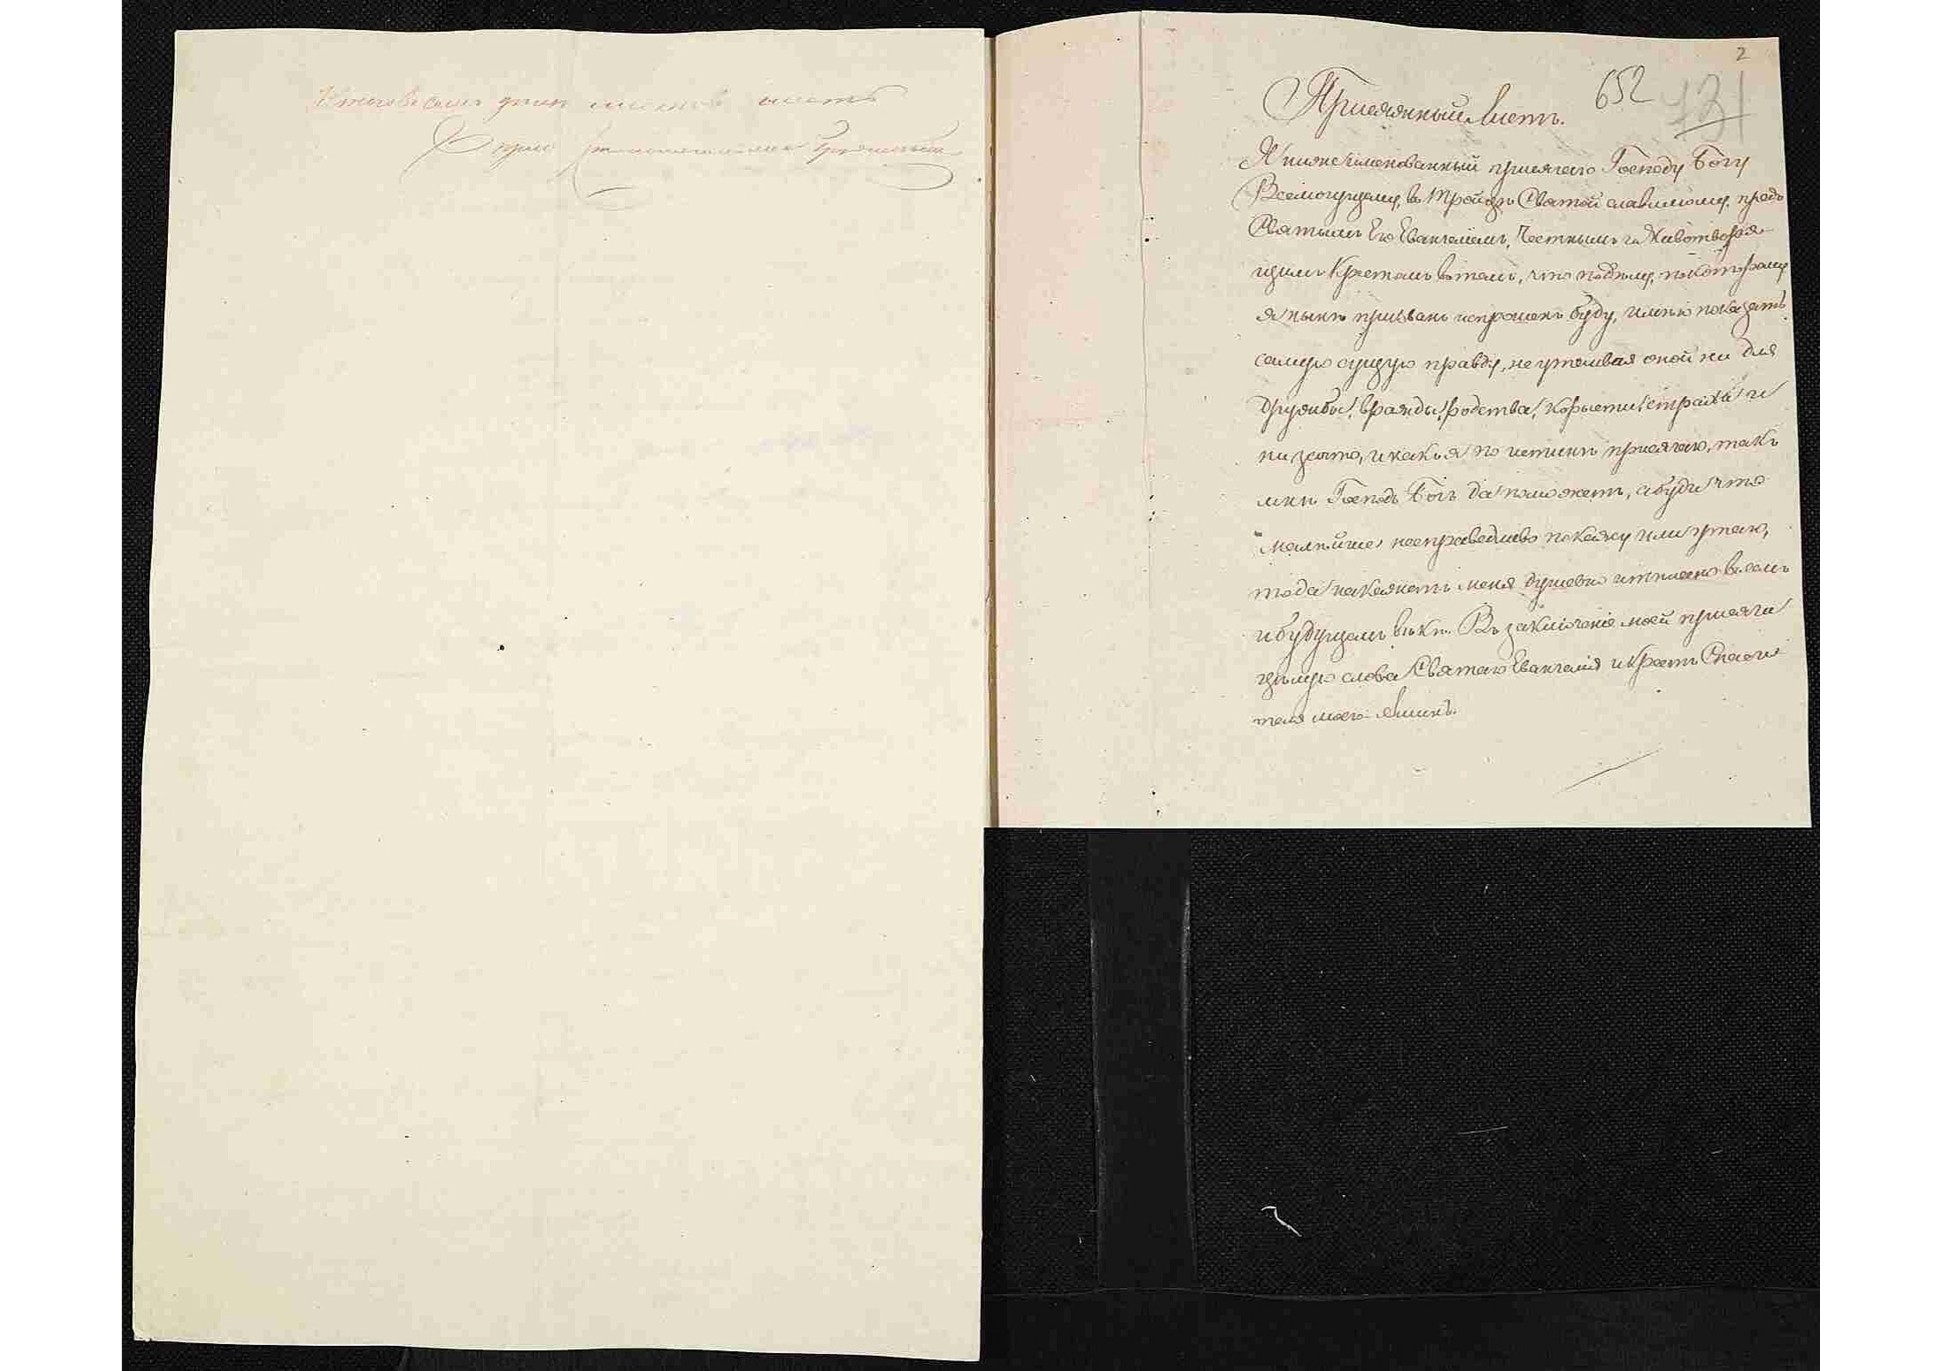 2
652
731
Присяжный листъ.
Я нижеименованный присягаю Господу Богу
Всемогущему, въ Тройцѣ Святой славимому, предъ
Святымъ Его Евангеліемъ, Честнымъ и Животворя-
щимъ Крестомъ въ томъ, что по дѣлу, по которому
я нынѣ призванъ и спрошенъ буду, имѣю показать
самую сущую правду, не утаивая оной ни для
дружбы, вражды, родства, корысти, страха и
ни за что, и какъ я по истинѣ присягаю, такъ
мнѣ Господь Богъ да поможетъ, а буде что
малѣйше несправедливо покажу или утаю,
то да накажетъ меня душевно и тѣлесно въ семъ
и будущемъ вѣкѣ. Въ заключеніе моей присяги
цѣлую слова Святаго Евангелія и Крестъ Спаси-
теля моего. Аминь.